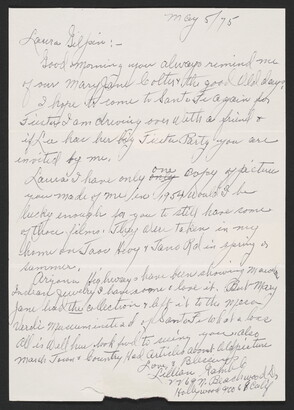 May 5/75
Laura Gilpin:-
Good morning you always remind me
of our Mary Jane Colter & the good Old days.
I hope to come to Santa Fe again for
Fiesta I am driving over with a friend &
if Lee has her big Fiesta Party you are
invited by me.
Laura I have only one copy of picture
you made of me in 1954 Would I be
lucky enough for you to still have some
of those films. They were taken in my
home on Taos Hwy & Tano Rd in spring or
summer.
Arizona Highways have been showing much
Indian Jewelry & have some & love it. But Mary
Jane had the collection & left it to the Mesa
Verde Museum instead of Santa Fe what a loss
All is well here look forward to seeing you also
March Town & Country had Articles about
Love & Blessings
Lillian
2269 N. Beachwood Dr
Hollywood Calif